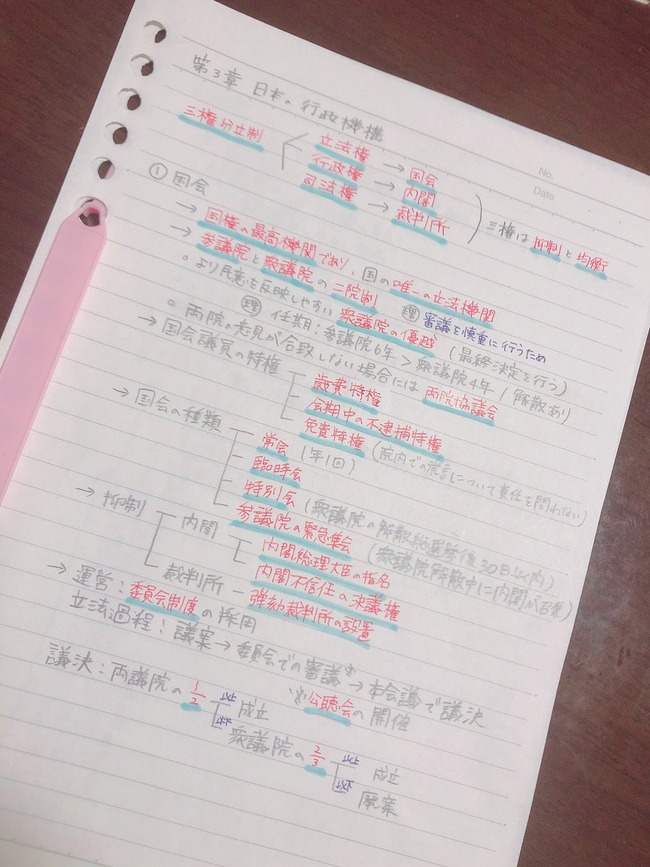 第3章 日本の行政機構
No.
Date
三権分立制
立法権 → 国会
行政権 → 内閣
司法権 → 裁判所
三権は抑制と均衡
① 国会
→ 国権の最高機関であり、国の唯一の立法機関
→ 参議院と衆議院の二院制 (理) 審議を慎重に行うため
○ より民意を反映しやすい衆議院の優越 (最終決定を行う)
(理) 任期:参議院6年 > 衆議院4年/解散あり
○ 両院の意見が合致しない場合には両院協議会
→ 国会議員の特権
歳費特権
会期中の不逮捕特権
免責特権 (院内での発言について責任を問われない)
→ 国会の種類
常会 (1年1回)
臨時会
特別会 (衆議院の解散総選挙後30日以内)
参議院の緊急集会 (衆議院解散中に内閣が召集)
→ 抑制
内閣
内閣総理大臣の指名
内閣不信任の決議権
裁判所 - 弾劾裁判所の設置
→ 運営:委員会制度の採用
立法過程:議案→委員会での審議※→本会議で議決
※公聴会の開催
議決:両議院の1/2
以上 成立
衆議院の2/3
以上 成立
廃案